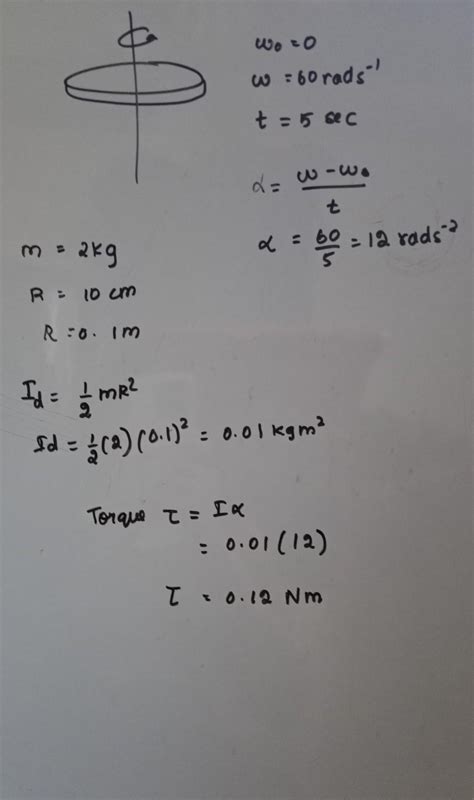 ω₀ = 0
ω = 60 rads⁻¹
t = 5 sec
α = (ω - ω₀)/t
α = 60/5 = 12 rads⁻²
m = 2kg
R = 10 cm
R = 0.1m
I_d = 1/2 mR²
Id = 1/2 (2) (0.1)² = 0.01 kgm²
Torque τ = Iα
= 0.01 (12)
τ = 0.12 Nm